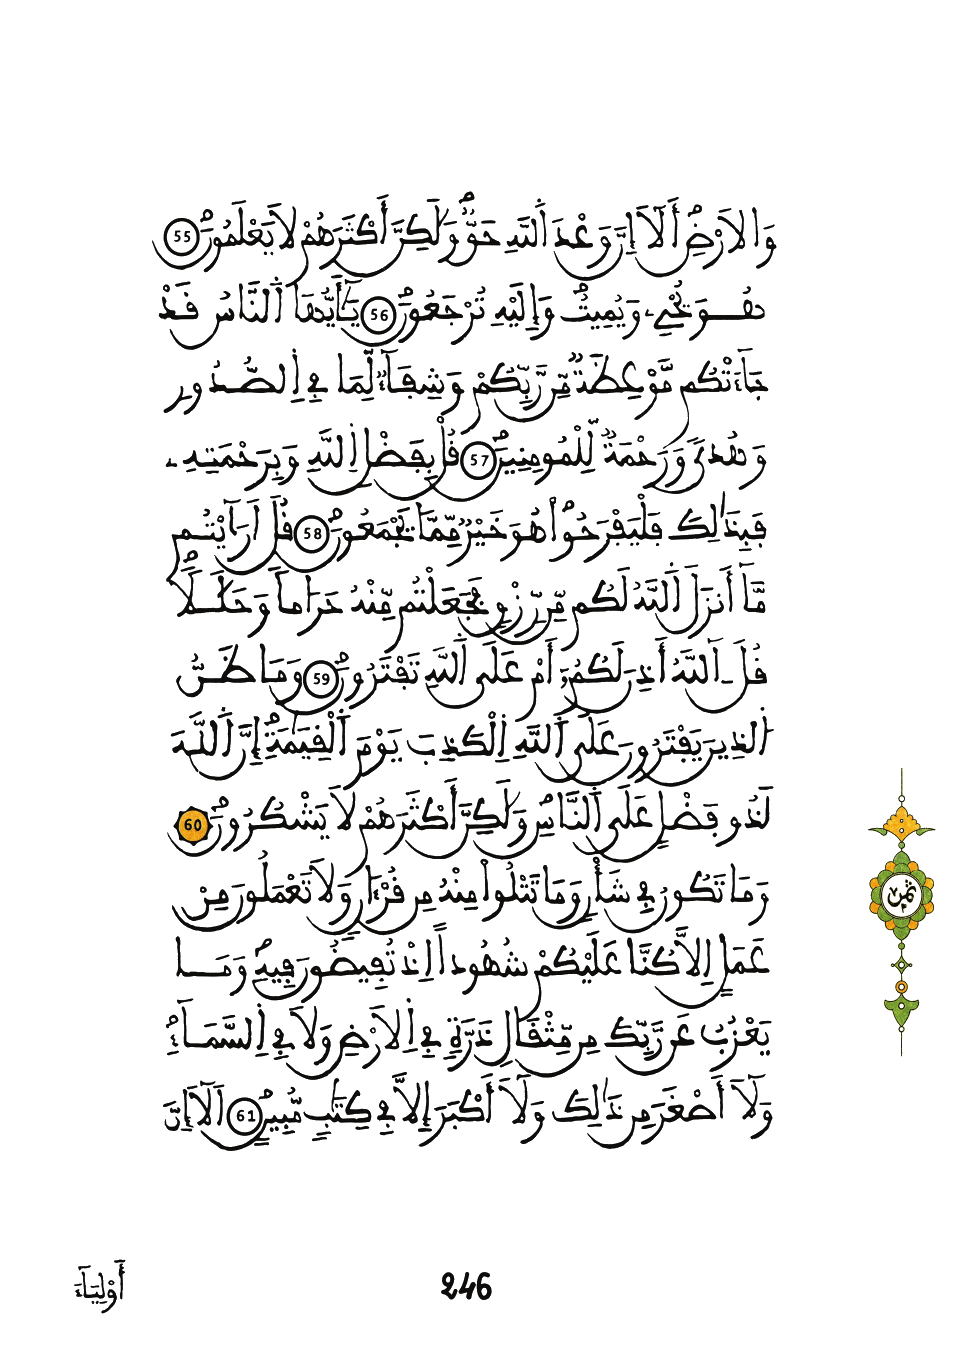 وَالَارْضِۖ أَلَآ إِنَّ وَعْدَ اَللَّهِ حَقّٞۖ وَلَٰكِنَّ أَكْثَرَهُمْ لَا يَعْلَمُونَۖ 55
هُوَ يُحْيِۦ وَيُمِيتُۖ وَإِلَيْهِ تُرْجَعُونَۖ 56 يَٰٓأَيُّهَا اَلنَّاسُ قَدْ
جَآءَتْكُم مَّوْعِظَةٞ مِّن رَّبِّكُمْ وَشِفَآءٞ لِّمَا فِے اِلصُّدُورِ
وَهُدىٗ وَرَحْمَةٞ لِّلْمُومِنِينَۖ 57 قُلْ بِفَضْلِ اِللَّهِ وَبِرَحْمَتِهِۦ
فَبِذَٰلِكَ فَلْيَفْرَحُواْۖ هُوَ خَيْرٞ مِّمَّا يَجْمَعُونَۖ 58 قُلَ اَرَٰٓيْتُم
مَّآ أَنزَلَ اَللَّهُ لَكُم مِّن رِّزْقٖ فَجَعَلْتُم مِّنْهُ حَرَاماٗ وَحَلَٰلاٗۖ
قُلَ اٰللَّهُ أَذِنَ لَكُمُۥٓ أَمْ عَلَى اَللَّهِ تَفْتَرُونَۖ 59 وَمَا ظَنُّ
اُلذِينَ يَفْتَرُونَ عَلَى اَللَّهِ اِلْكَذِبَ يَوْمَ اَلْقِيَٰمَةِۖ إِنَّ اَللَّهَ
لَذُو فَضْلٍ عَلَى اَلنَّاسِۖ وَلَٰكِنَّ أَكْثَرَهُمْ لَا يَشْكُرُونَۖ 60
وَمَا تَكُونُ فِے شَأْنٖ وَمَا تَتْلُواْ مِنْهُ مِن قُرْءَانٖ وَلَا تَعْمَلُونَ مِنْ
عَمَلٍ اِلَّا كُنَّا عَلَيْكُمْ شُهُوداً اِذْ تُفِيضُونَ فِيهِۖ وَمَا
يَعْزُبُ عَن رَّبِّكَ مِن مِّثْقَالِ ذَرَّةٖ فِے اِلَارْضِ وَلَا فِے اِلسَّمَآءِ
وَلَآ أَصْغَرَ مِن ذَٰلِكَ وَلَآ أَكْبَرَ إِلَّا فِے كِتَٰبٖ مُّبِينٍۖ 61 اَلَآ إِنَّ
ثمن
أَوْلِيَآءَ
246